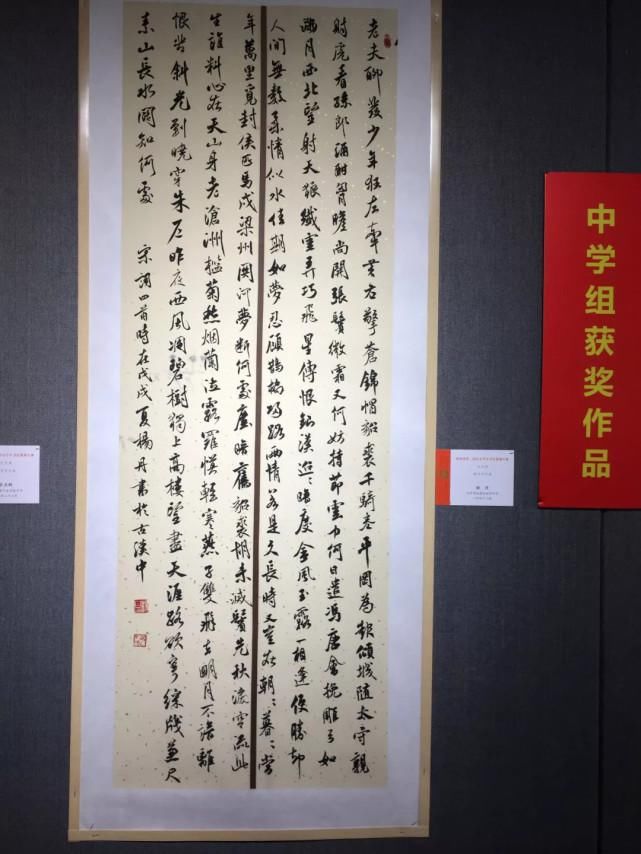 老夫聊發少年狂左牽黃右擎蒼錦帽貂裘千騎卷平岡為報傾城隨太守親
射虎看孫郎酒酣胷膽尚開張鬢微霜又何妨持節雲中何日遣馮唐會挽雕弓如
滿月西北望射天狼纖雲弄巧飛星傳恨銀漢迢〻暗度金風玉露一相逢便勝卻
人間無數柔情似水佳期如夢忍顧鵲橋歸路兩情若是久長時又豈在朝〻暮〻當
年萬里覓封侯匹馬戍梁州關河夢斷何處塵暗舊貂裘胡未滅鬢先秋淚空流此
生誰料心在天山身老滄洲檻菊愁烟蘭泣露羅幕輕寒燕子雙飛去明月不諳離
恨苦斜光到曉穿朱戶昨夜西風凋碧樹獨上高樓望盡天涯路欲寄綵箋兼尺
素山長水闊知何處 宋詞四首時在戊戌夏楊丹書於古漢中
中学组获奖作品